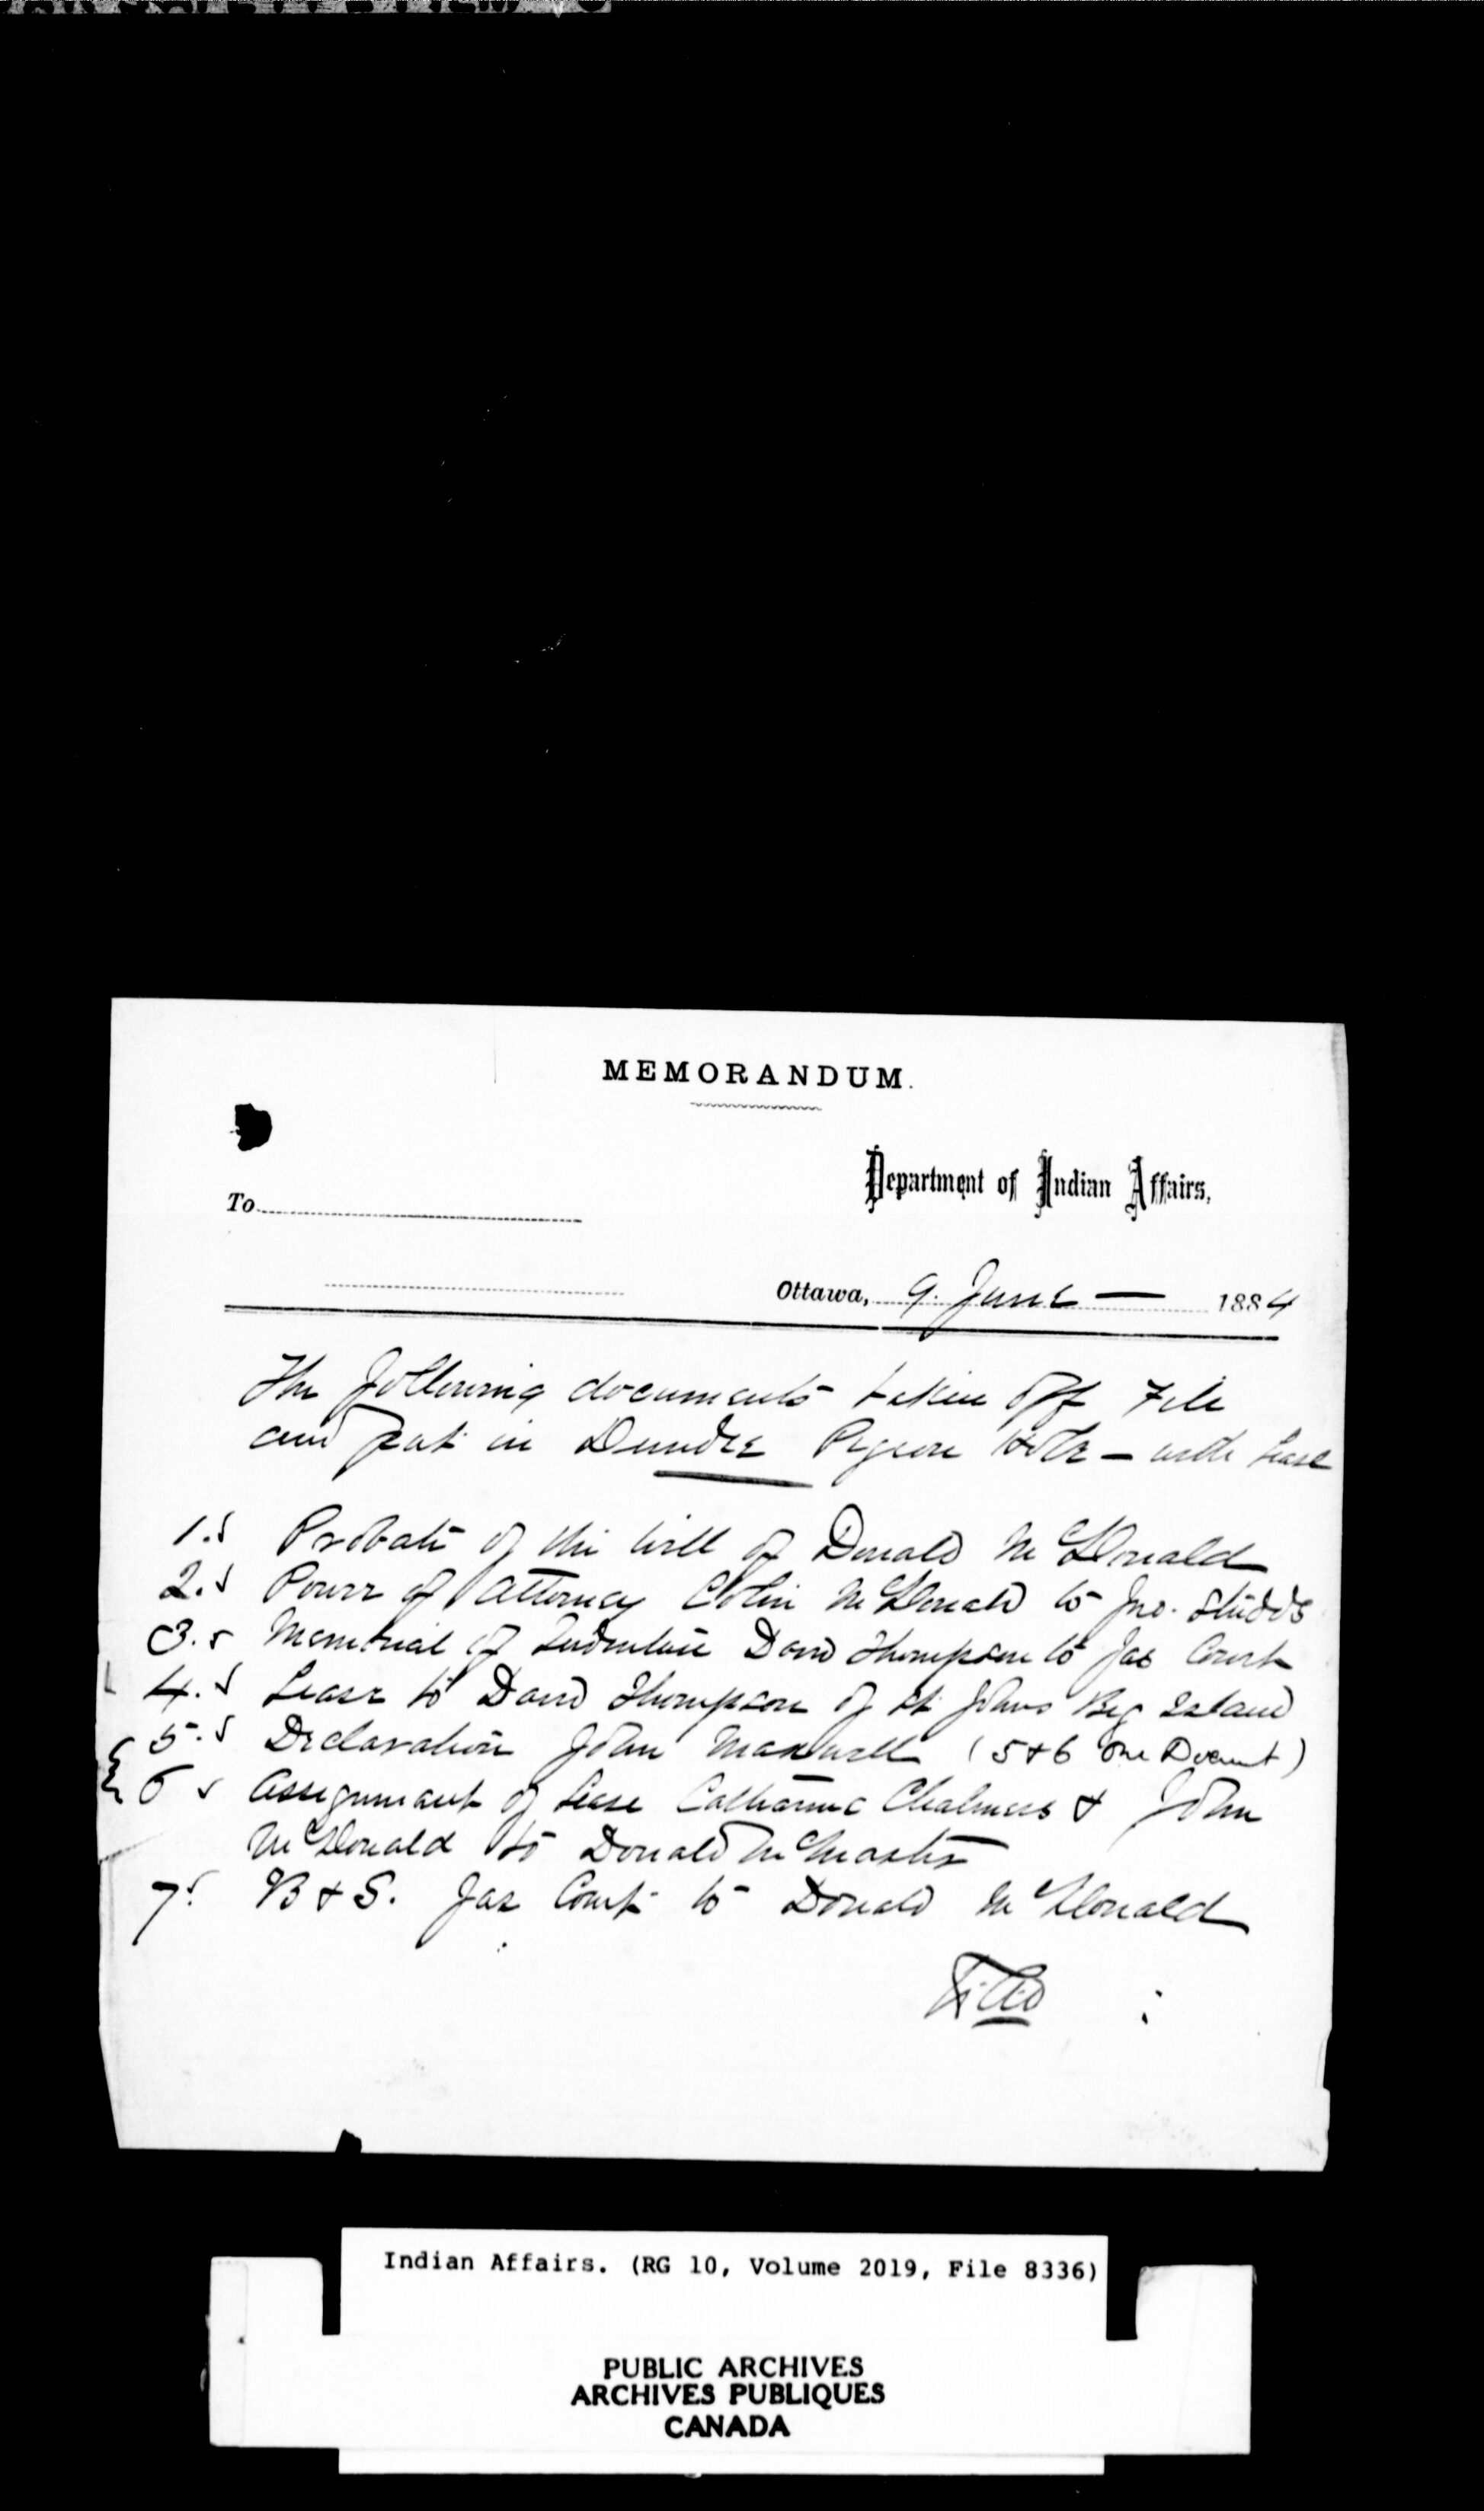 MEMORANDUM.
Department of Indian Affairs,
To
Ottawa, 9. June — 1884
The following documents taken off File
and put in Dundee Pigeon Hole – with lease
1. Probate of the will of Donald McDonald
2. Power of Attorney Colin McDonald to Jno. Studds
3. Memorial of Indenture David Thompson to Jas Court
4. Lease to David Thompson of St Johns Big Island
5. Declaration John Maxwell (5 & 6 one Document)
6 Assignment of Lease Catharine Chalmers & John
McDonald to Donald McMaster
7. B & S. Jas Court to Donald McDonald
Indian Affairs. (RG 10, Volume 2019, File 8336)
PUBLIC ARCHIVES
ARCHIVES PUBLIQUES
CANADA